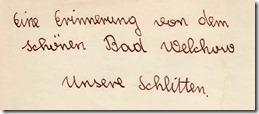 Eine Erinnerung von dem
schönen Bad Welchow
Unsere Schlitten.